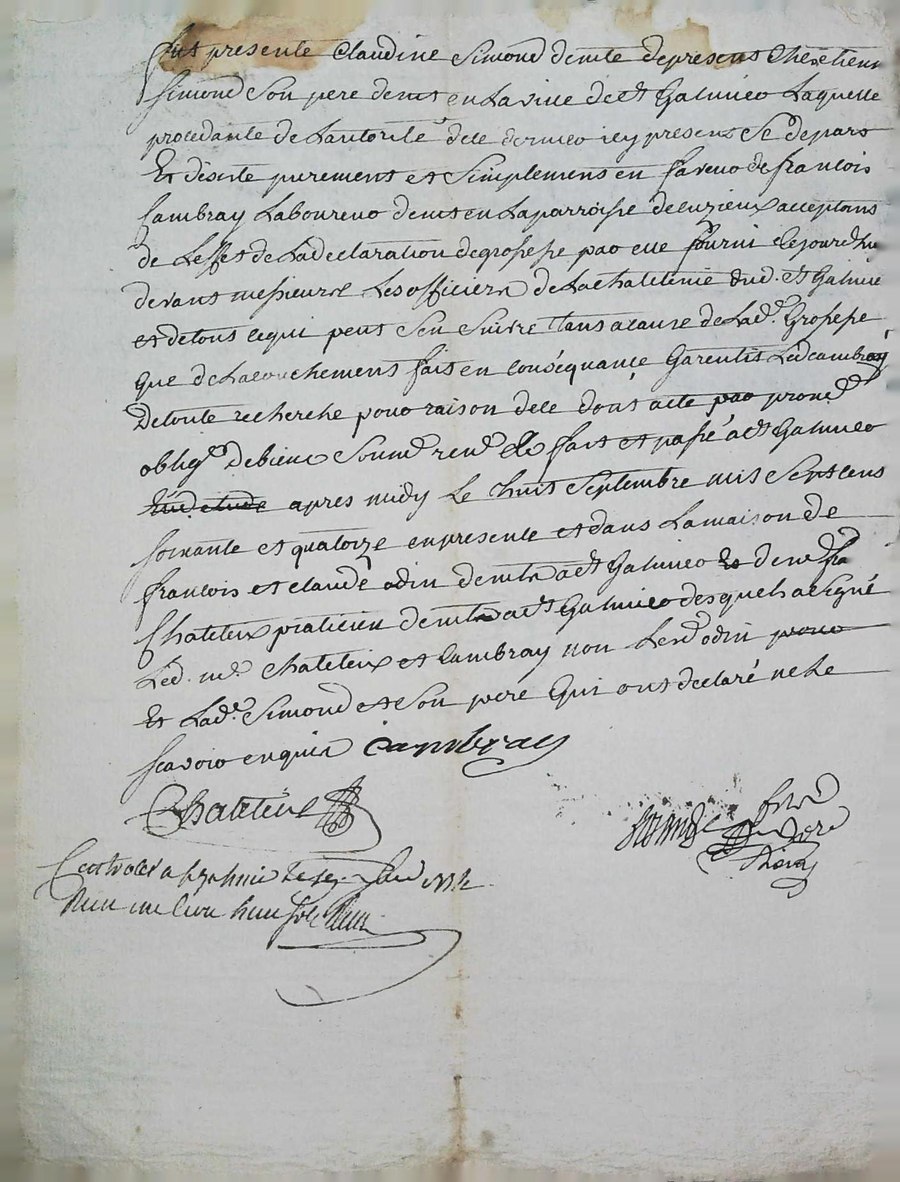 fut presente Claudine Simond demte depresent Chretienne
Simond Son pere demt en La ville de St Galmier Laquelle
procedante de Lautorité de ce dernier icy present Se depart
Et desiste purement et Simplement en faveur de francois
Cambray Laboureur demt en La parroisse de cuzieux acceptant
de Leffet de La declaration de grossesse par elle fourni cejourdhuy
devant messieurs Les officiers de La chatelenie dud. St Galmier
et de tous ce qui peut Sen Suivre tant a cause de Lad.e Grossesse
que de Lacouchement fait en conséquance Garentit Led cambray
De toute recherche pour raison de ce dont acte par prome
oblig.on De biens Soum.on ren.on &c fait et passé a St Galmier
apres midy Le huit Septembre mil Sept cens
soixante et quatorze en presence et dans La maison de
francois et claude odin demts a St Galmier Et de me fra
Chateleux praticien demt a St Galmier desquels a Signé
Led. me Chateleux et Cambray non Lesd odin
Et Lad.e Simond et Son pere Qui ont declaré ne Le
scavoir enquis Cambray
Chateleux
Controlé a St galmier Le